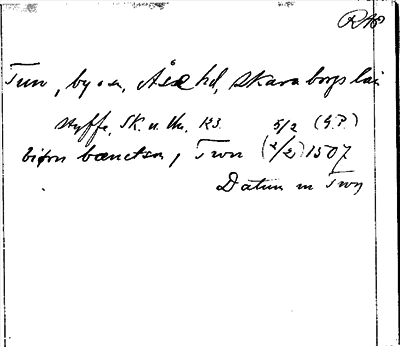 Tun, by o sn, Åse hd, Skaraborgs län
Styffe, Sk. u. Un. 123. 5/2 (G.P.)
biørn bænctson, Twn (2/2) 1507
Datum in Twn